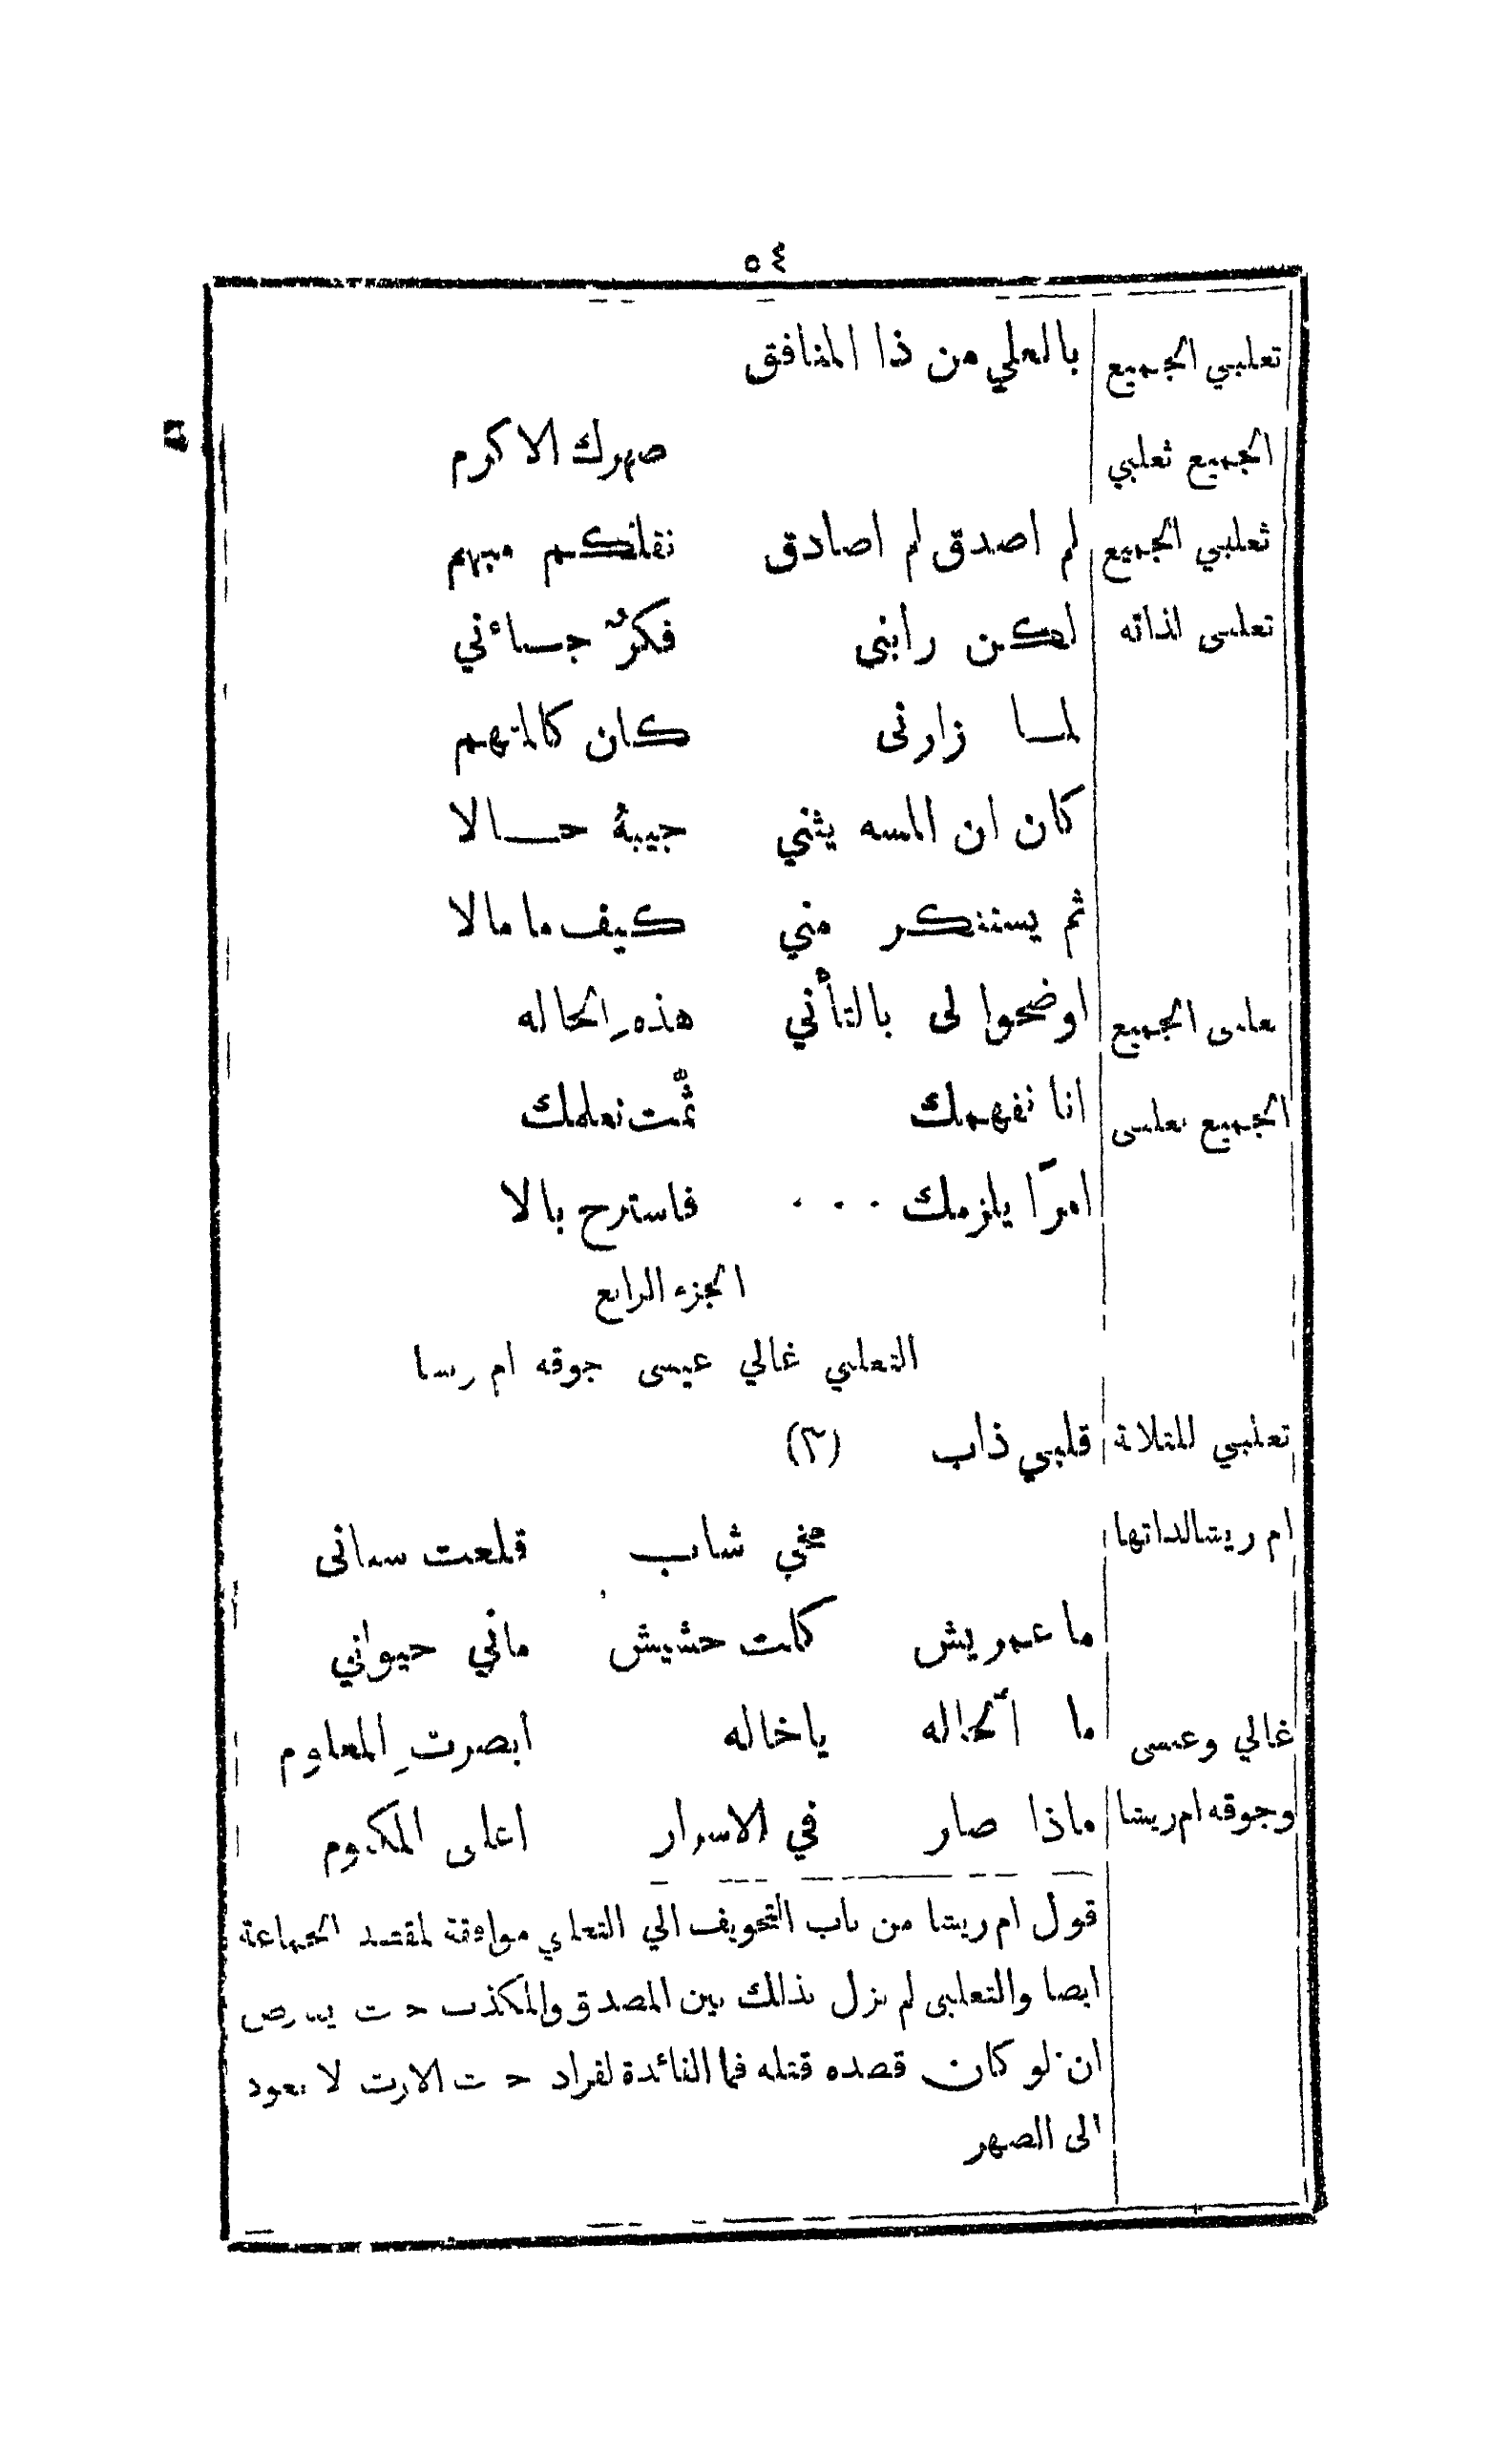 ٥٤
تعلبي الجميع بالعلي من ذا المنافق
الجميع ثعلبي صهرك الاكرم
ثعلبي الجميع لم اصدق لم اصادق نقلكم مبهم
تعلبى لذاته لكن رابنى فكرٌ جسائني
لمسا زارنى كان كالمتهم
كان ان المسه يثني جيبهُ حسالا
ثم يستنكر مني كيف ما مالا
الجميع اوضحوا لى بالتأني هذهِ الحاله
الجميع تعلبى انا نفهمك ثمّت نعلمك
امرًا يلزمك . . . فاسترح بالا
الجزء الرابع
التعلبي غالي عيسى جوقه ام رسا
تعلبي للتلاتة قلبي ذاب (٣)
ام ريشالداتها مخي شاب قلعت سنانى
ما عمريش كلت حشيش ماني حيواني
غالي وعيسى ما الحاله ياخاله ابصرتِ المعلوم
وجوقه ام ريشا ماذا صار في الاسرار اعلى المكتوم
قول ام ريشا من باب التخويف الي التعلبي موافقة لمقصد الجماعة
ايضا والتعلبى لم يزل بذلك بين المصدق والمكذب
ان لو كان قصده قتله فما الفائدة لقراد الارت لا تعود
الى الصهر